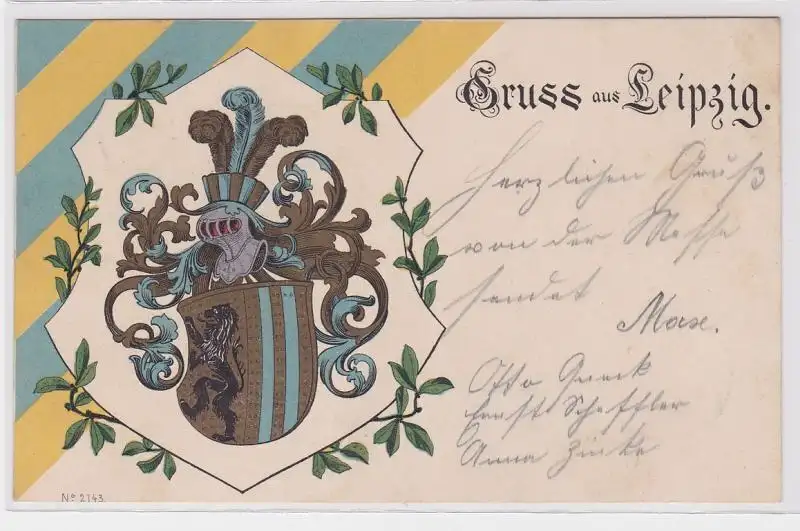 Gruss aus Leipzig.
Herzlichen Gruß
von der Messe
sendet
Max.
Otto
Ernst Scheffler
Anna Zinke
No. 2143.